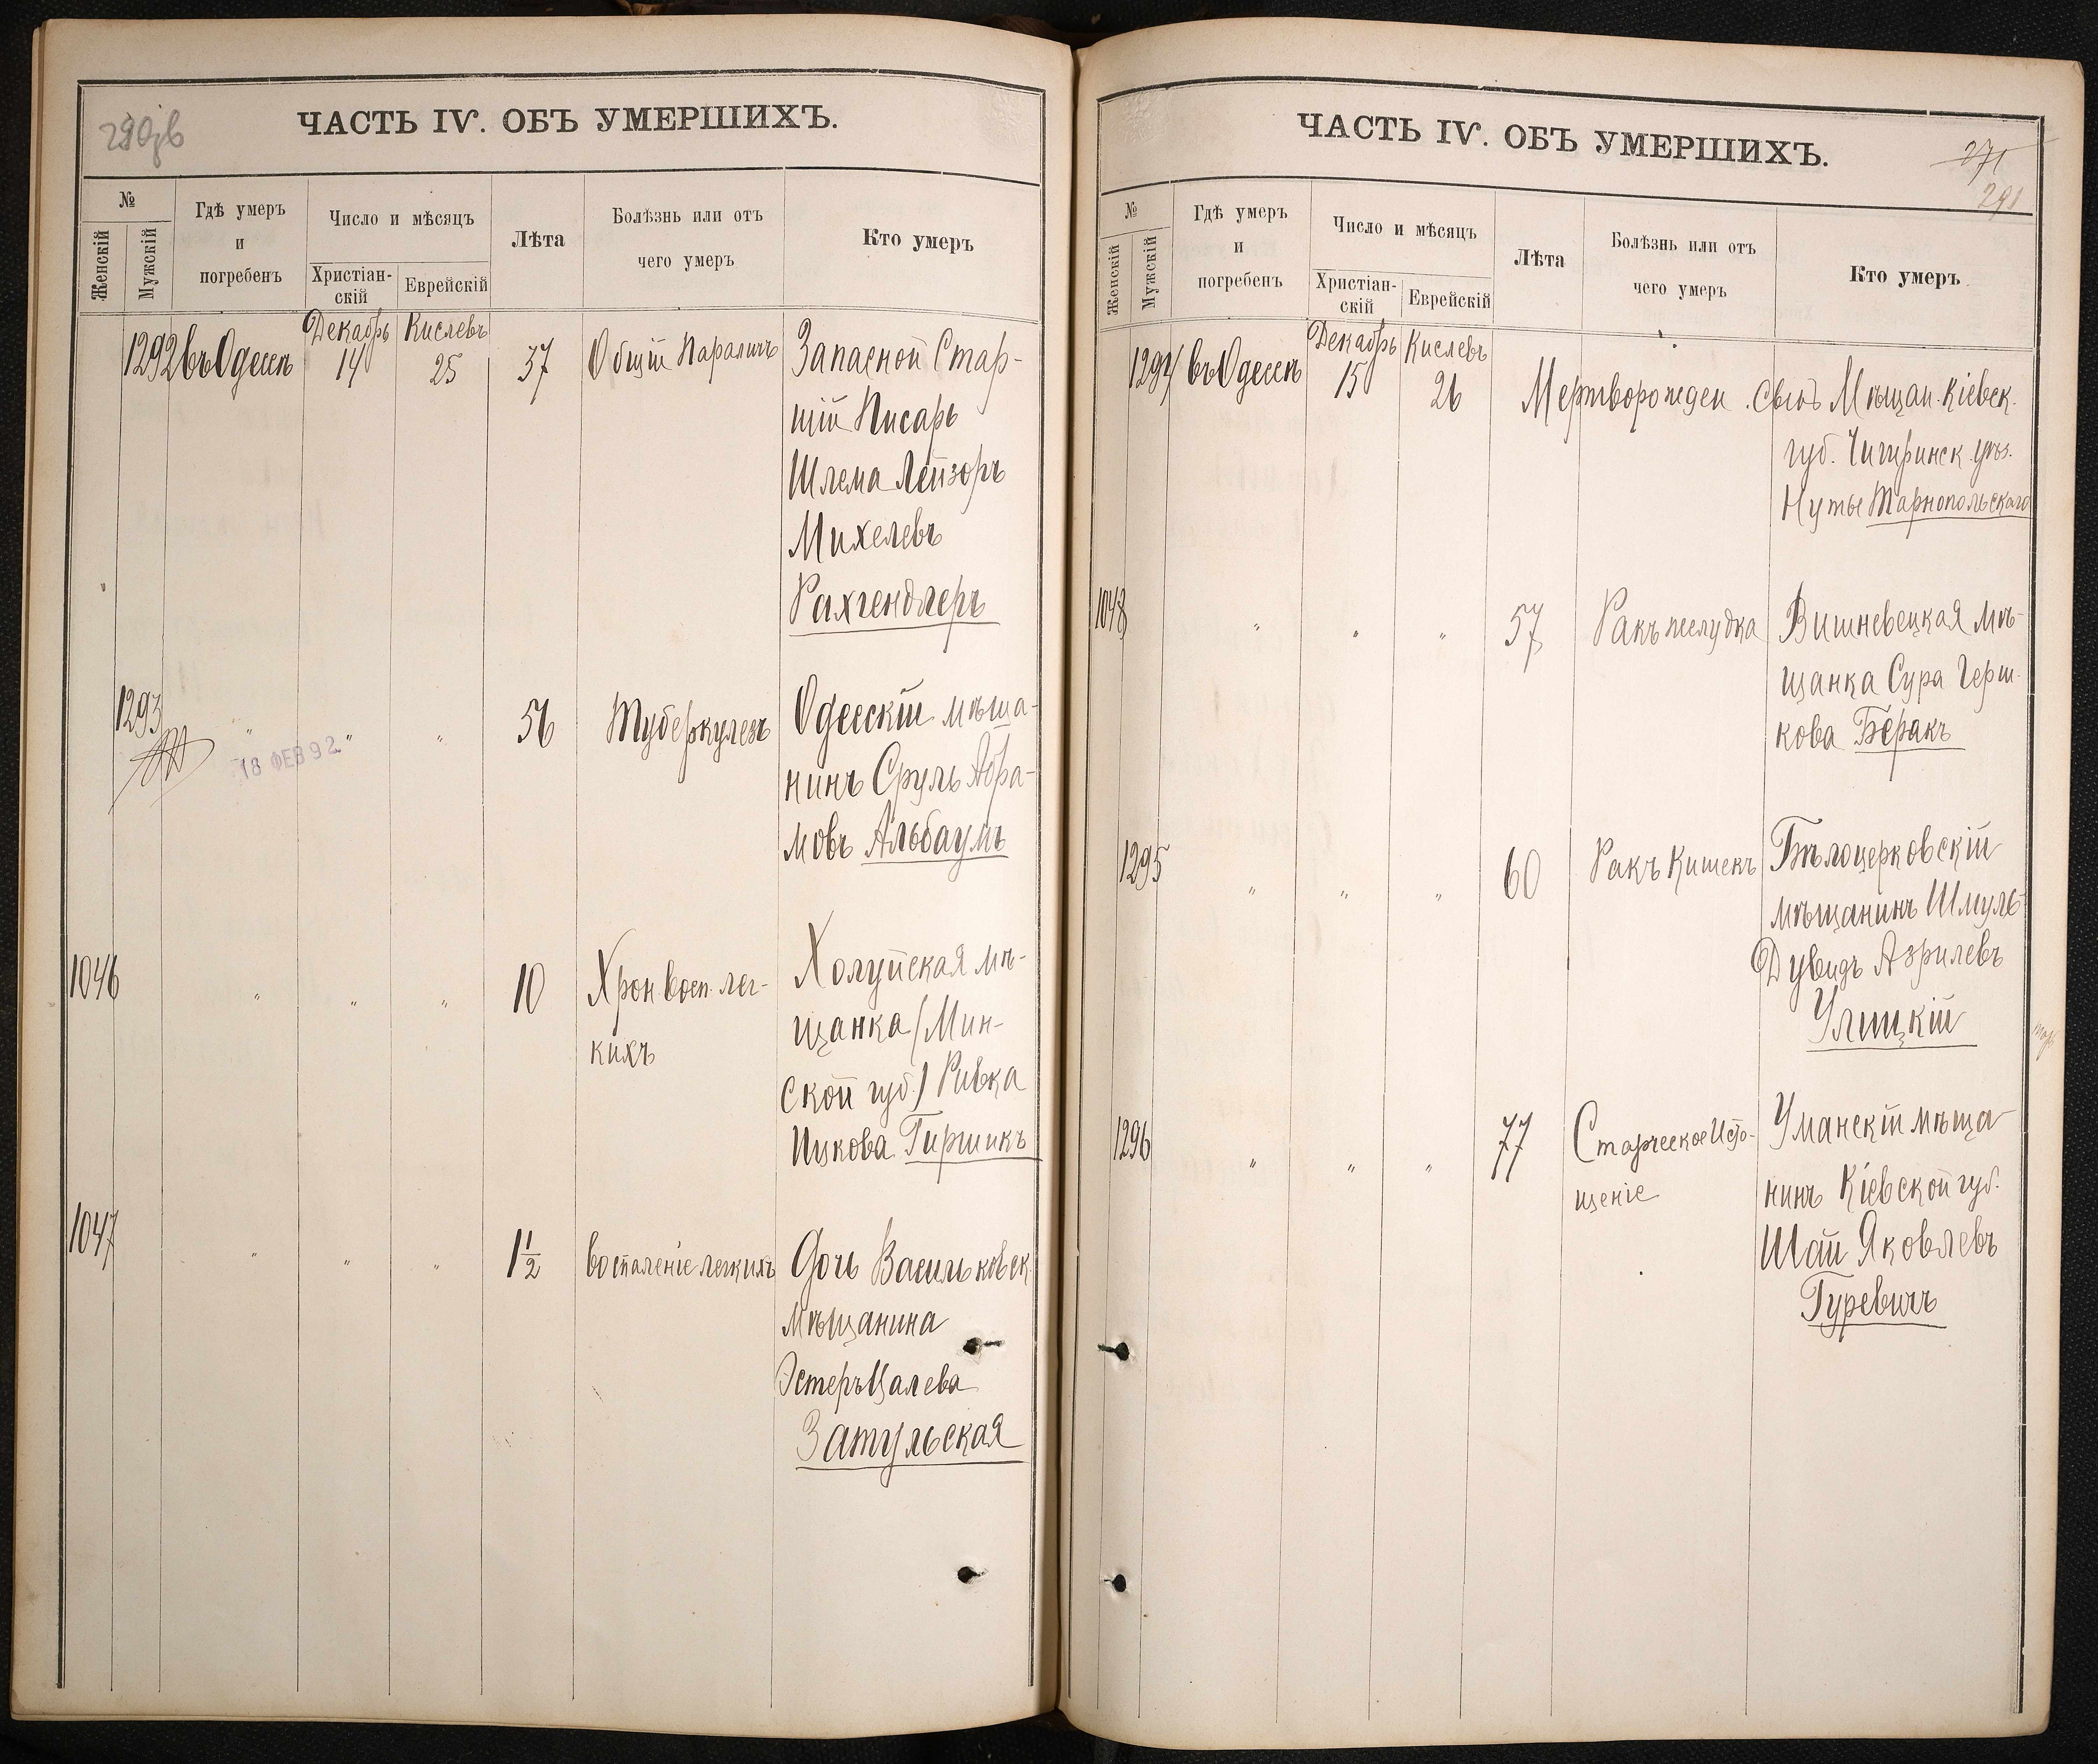 290об
ЧАСТЬ IV. ОБЪ УМЕРШИХЪ.
№
Женскій
Мужскій
Гдѣ умеръ
и
погребенъ
Число и мѣсяцъ
Христіан-
скій
Еврейскій
Лѣта
Болѣзнь или отъ
чего умеръ
Кто умеръ
Декабрь Кислевъ
1292 въ Одессѣ 14 25 37 Общій Параличъ Запасной Стар-
шій Писарь
Шлема Лейзоръ
Михелевъ
Рахгендлеръ
1293 " " " 56 Туберкулезъ Одесскій мѣща-
нинъ Сруль Абра-
мовъ Альбаумъ
18 ФЕВ 92
1046 " " " 10 Хрон. восп. лег-
кихъ
Холуйская мѣ-
щанка (Мин-
ской губ.) Ривка
Ицкова Гиршикъ
1047 " " " 1 1/2 воспаленіе легкихъ Дочь Васильковск.
мѣщанина
Эстеръ Цалева
Затульская
ЧАСТЬ IV. ОБЪ УМЕРШИХЪ.
271
291
№
Женскій
Мужскій
Гдѣ умеръ
и
погребенъ
Число и мѣсяцъ
Христіан-
скій
Еврейскій
Лѣта
Болѣзнь или отъ
чего умеръ
Кто умеръ
Декабрь Кислевъ
1294 въ Одессѣ 15 26 Мертворожден. сынъ Мѣщан. Кіевск.
губ. Чигиринск. уѣз.
Нуты Тарнопольскаго
1048 " " " 57 Ракъ желудка Вишневецкая мѣ-
щанка Сура Герш-
кова Беракъ
1295 " " " 60 Ракъ Кишекъ Бѣлоцерковскій
мѣщанинъ Шмуль-
Дувидъ Азрилевъ
Улицкій
1296 " " " 77 Старческое Исто-
щеніе
Уманскій мѣща-
нинъ Кіевской губ.
Шая Яковлевъ
Гуревичъ